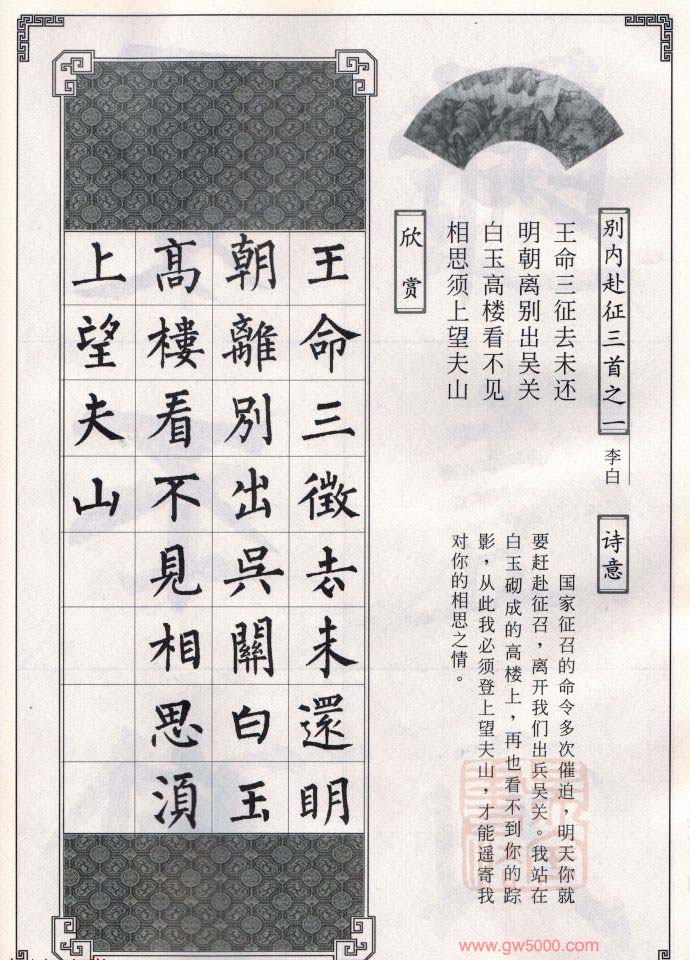 别内赴征三首之一
李白
王命三征去未还
明朝离别出吴关
白玉高楼看不见
相思须上望夫山
诗意
国家征召的命令多次催迫，明天你就
要赶赴征召，离开我们出兵吴关。我站在
白玉砌成的高楼上，再也看不到你的踪
影，从此我必须登上望夫山，才能遥寄我
对你的相思之情。
欣赏
王命三徵去未還明
朝離別出吳關白玉
高樓看不見相思須
上望夫山
www.gw5000.com